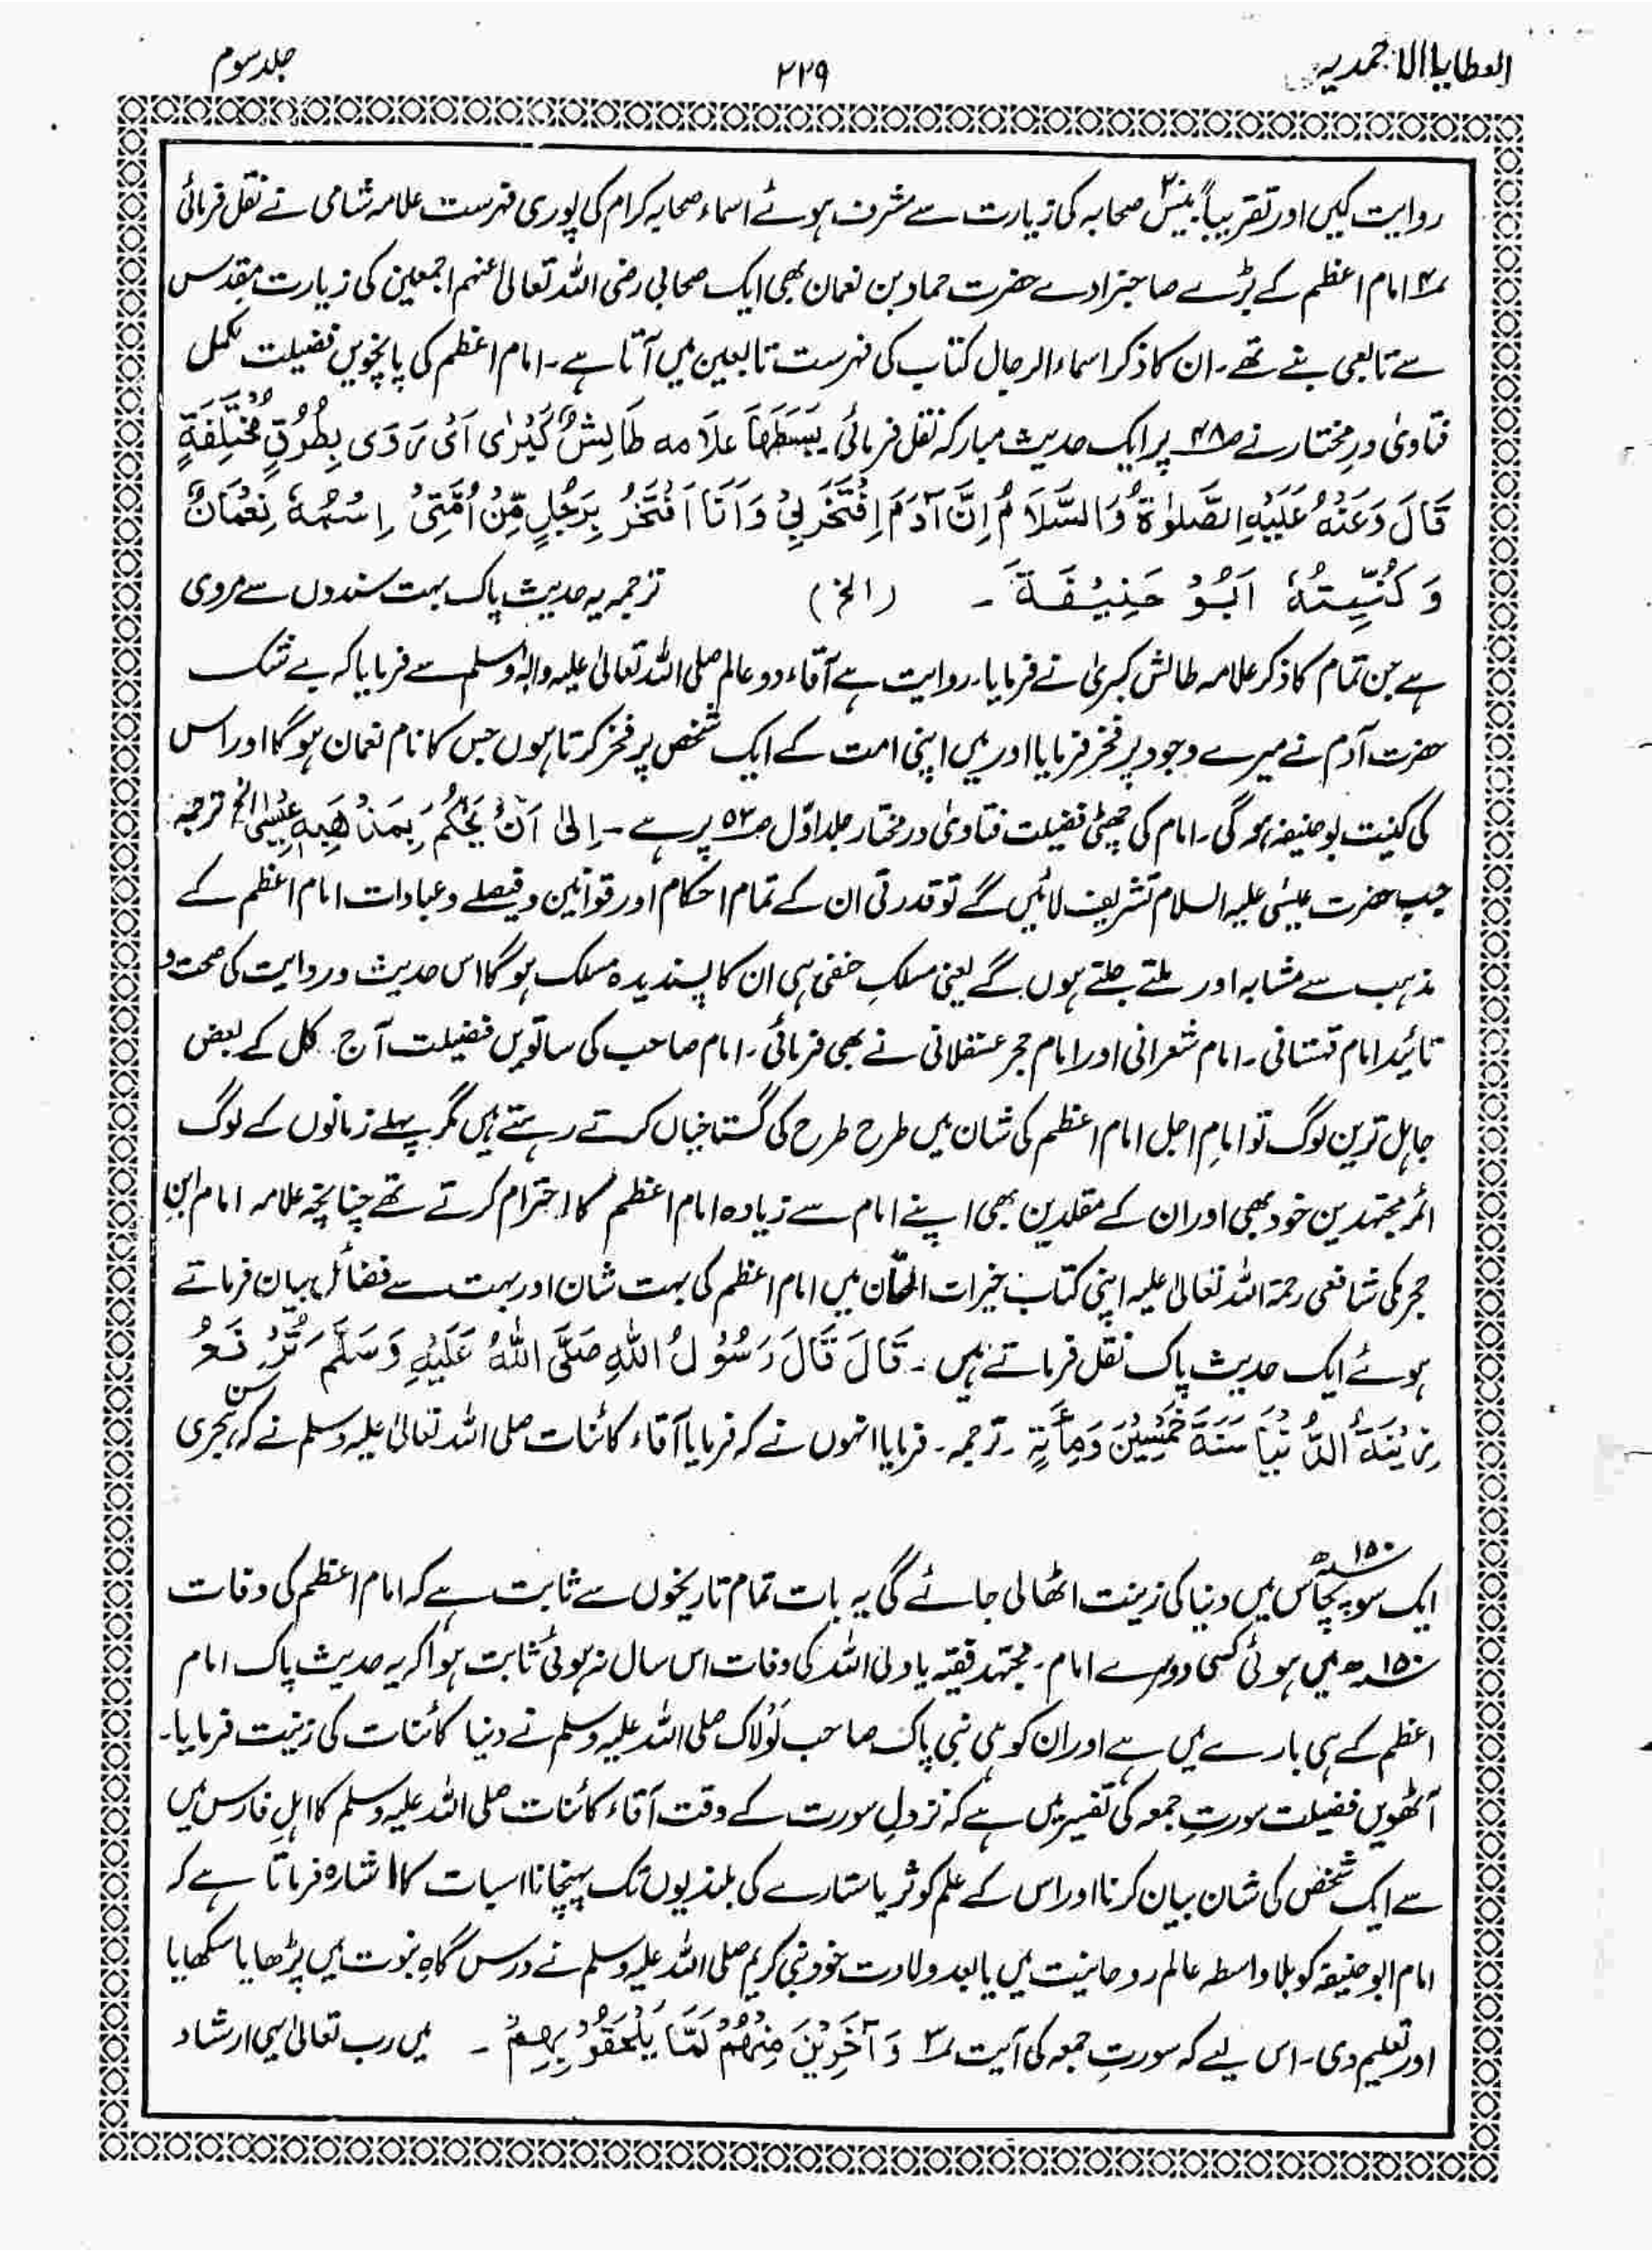 العطایا الاحمدیہ
۲۲۹
جلد سوم
روایت کیں اور تقریباً بیس۲۰ صحابہ کی زیارت سے مشرف ہوئے اسماء صحابہ کرام کی پوری فہرست علامہ شامی نے نقل فرمائی
۴؎ امام اعظم کے بڑے صاحبزادے حضرت حماد بن نعمان بھی ایک صحابی رضی اللہ تعالیٰ عنہم اجمعین کی زیارت مقدس
سے تابعی بنے تھے۔ ان کا ذکر اسماء الرجال کتاب کی فہرست تابعین میں آتا ہے۔ امام اعظم کی پانچویں فضیلت مکمل
فتاویٰ درِ مختار نے صـ۴۸ پر ایک حدیث مبارکہ نقل فرمائی بَسَطَهَا علاَمہ طَالِشْ كُبْرٰى اَیْ رَوَی بِطُرُقٍ مُّخْتَلِفَةٍ
قَالَ وَعَنْهُ عَلَيْهِ الصَّلٰوةُ وَالسَّلَامُ اِنَّ آدَمَ اِفْتَخَرَ بِيْ وَ اَنَا اَفْتَخِرُ بِرَجُلٍ مِّنْ اُمَّتِیْ اِسْمُهٗ نِعْمَانٌ
وَ كُنِّيَتُهٗ اَبُوْ حَنِيْفَةَ ۔ (الخ) ترجمہ یہ حدیث پاک بہت سندوں سے مروی
ہے جن تمام کا ذکر علامہ طالش کبریٰ نے فرمایا۔ روایت ہے آقاء دو عالم صلی اللہ تعالیٰ علیہ واٰلہٖ وسلم سے فرمایا کہ بے شک
حضرت آدم نے میرے وجود پر فخر فرمایا اور میں اپنی امت کے ایک شخص پر فخر کرتا ہوں جس کا نام نعمان ہوگا اور اس
کی کنیت بو حنیفہ ہوگی۔ امام کی چھٹی فضیلت فتاویٰ درمختار جلد اوّل صـ۵۲ پر ہے۔ اِلیٰ اَنْ يَّحْكُمَ بِمَذْهَبِهٖ عِيْسٰى الخ ترجمہ
جب حضرت عیسٰی علیہ السلام تشریف لائیں گے تو قدرتی ان کے تمام احکام اور قوانین و فیصلے و عبادات امام اعظم کے
مذہب سے مشابہ اور ملتے جلتے ہوں گے یعنی مسلکِ حنفی ہی ان کا پسندیدہ مسلک ہوگا اس حدیث و روایت کی صحت و
تائید امام قہستانی۔ امام شعرانی اور امام حجر عسقلانی نے بھی فرمائی۔ امام صاحب کی ساتویں فضیلت آج کل کے بعض
جاہل ترین لوگ تو امامِ اجل امام اعظم کی شان میں طرح طرح کی گستاخیاں کرتے رہتے ہیں مگر پہلے زمانوں کے لوگ
ائمہ مجتہدین خود بھی اور ان کے مقلدین بھی اپنے امام سے زیادہ امام اعظم کا احترام کرتے تھے چنانچہ علامہ امام ابنِ
حجر مکی شافعی رحمۃ اللہ تعالیٰ علیہ اپنی کتاب خیرات الحسان میں امام اعظم کی بہت شان اور بہت سے فضائل بیان فرماتے
ہوئے ایک حدیث پاک نقل فرماتے ہیں۔ قَالَ قَالَ رَسُوْلُ اللّٰهِ صَلَّى اللّٰهُ عَلَيْهِ وَسَلَّمَ تُرْفَعُ
زِيْنَةُ الدُّنْيَا سَنَةَ خَمْسِيْنَ وَمِأَةٍ ۔ ترجمہ۔ فرمایا انہوں نے کہ فرمایا آقاء کائنات صلی اللہ تعالیٰ علیہ وسلم نے کہ سن ہجری
ایک سو پچاس ۱۵۰ھ میں دنیا کی زینت اٹھا لی جائے گی یہ بات تمام تاریخوں سے ثابت ہے کہ امام اعظم کی وفات
۱۵۰ھ میں ہوئی کسی دوسرے امام۔ مجتہد فقیہ یا ولی اللہ کی وفات اس سال نہ ہوئی ثابت ہوا کہ یہ حدیث پاک امام
اعظم کے ہی بارے میں ہے اور ان کو ہی نبی پاک صاحب لَوْلَاک صلی اللہ علیہ وسلم نے دنیا کائنات کی زینت فرمایا۔
آٹھویں فضیلت سورتِ جمعہ کی تفسیر میں ہے کہ نزولِ سورت کے وقت آقاء کائنات صلی اللہ علیہ وسلم کا اہلِ فارس میں
سے ایک شخص کی شان بیان کرنا اور اس کے علم کو ثریا ستارے کی بلندیوں تک پہنچانا اسبات کا اشارہ فرماتا ہے کہ
امام ابو حنیفہ کو بلا واسطہ عالم روحانیت میں یا بعد ولادت خود نبی کریم صلی اللہ علیہ وسلم نے درس گاہِ نبوت میں پڑھایا سکھایا
اور تعلیم دی۔ اس لیے کہ سورتِ جمعہ کی آیت ۳؎ وَ آخَرِيْنَ مِنْهُمْ لَمَّا يَلْحَقُوْ بِهِمْ ۔ میں رب تعالیٰ یہی ارشاد